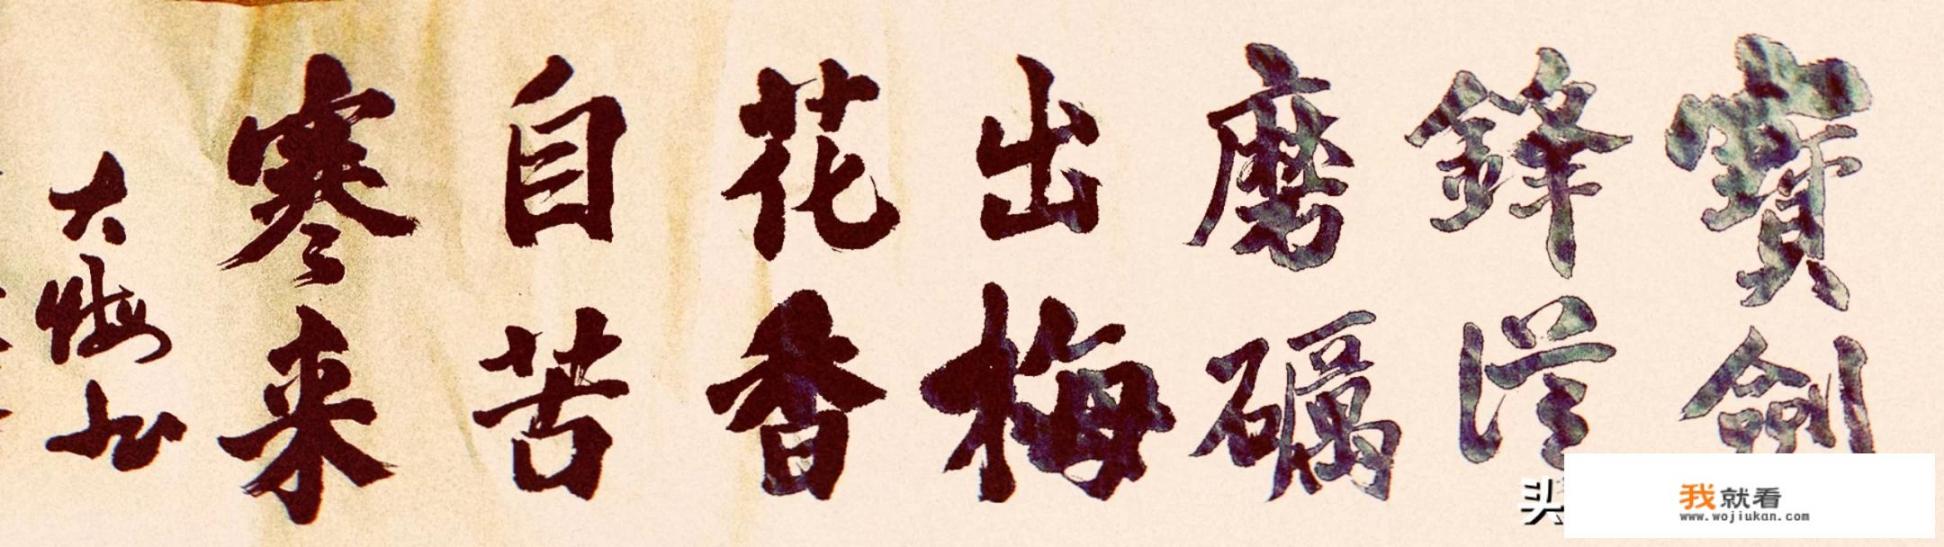 寶劍
鋒從
磨礪
出梅
花香
自苦
寒来
大
头
我就看
www.wojiukan.com